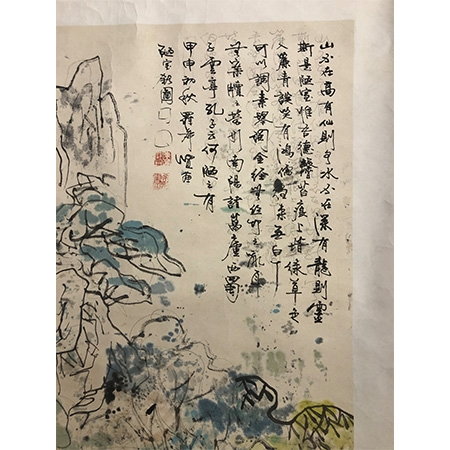 山不在高有仙則名水不在深有龍則靈
斯是陋室惟吾德馨苔痕上堦綠草色
入簾青談笑有鴻儒往来无白丁
可以調素琴閱金經無絲竹之亂耳
無案牘之勞形南陽諸葛廬西蜀
子雲亭孔子云何陋之有
甲申初秋羅希賢
陋室銘圖